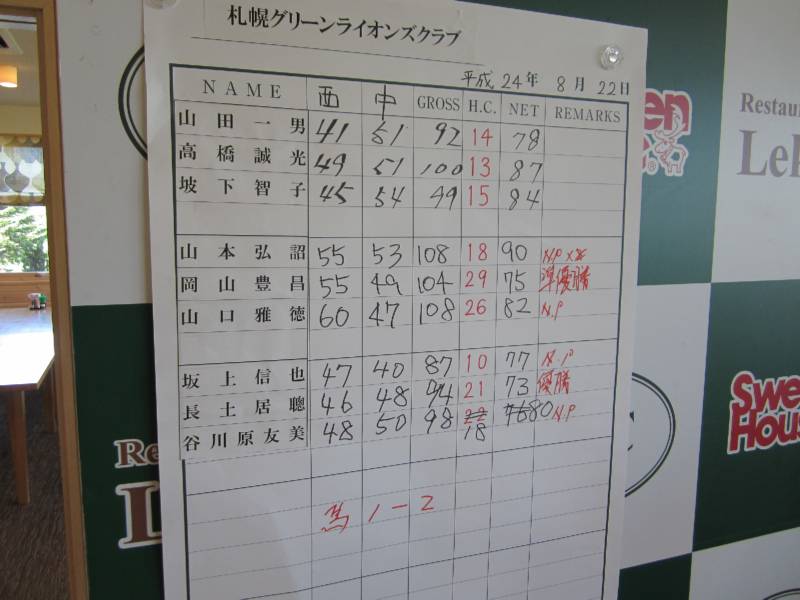 札幌グリーンライオンズクラブ
平成 24年 8月 22日
NAME 西 中 GROSS H.C. NET REMARKS
山田一男 41 51 92 14 78
高橋誠光 49 51 100 13 87
坂下智子 45 54 99 15 84
山本弘詔 55 53 108 18 90 N.P
岡山豊昌 55 49 104 29 75 準優勝
山口雅徳 60 47 108 26 82 N.P
坂上信也 47 40 87 10 77 N.P
長土居聰 46 48 94 21 73 優勝
谷川原友美 48 50 98 18 80 N.P
馬 1-2
Restau
Le
Swe
House
Re